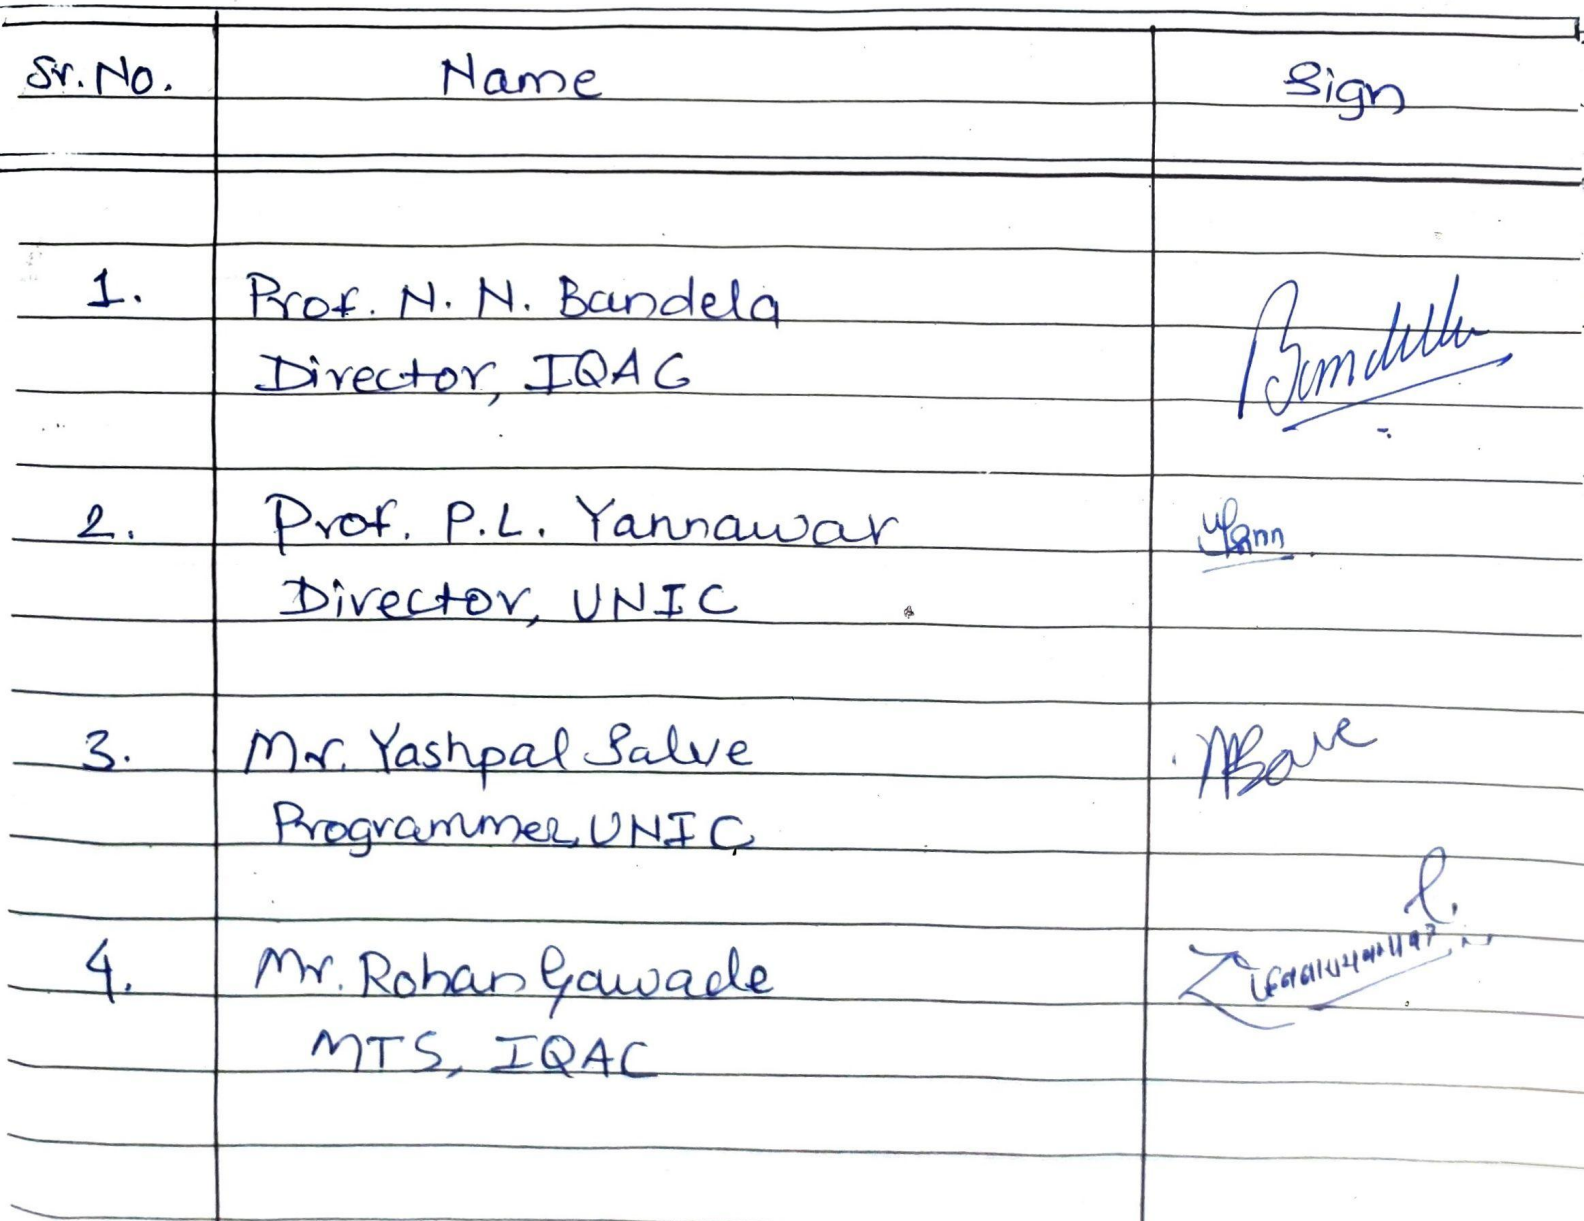 Sr. No. Name Sign
1. Prof. N. N. Bandela
Director, IQAC
2. Prof. P.L. Yannawar
Director, UNIC
3. Mr. Yashpal Salve
Programmer, UNIC
4. Mr. Rohan Gawade
MTS, IQAC